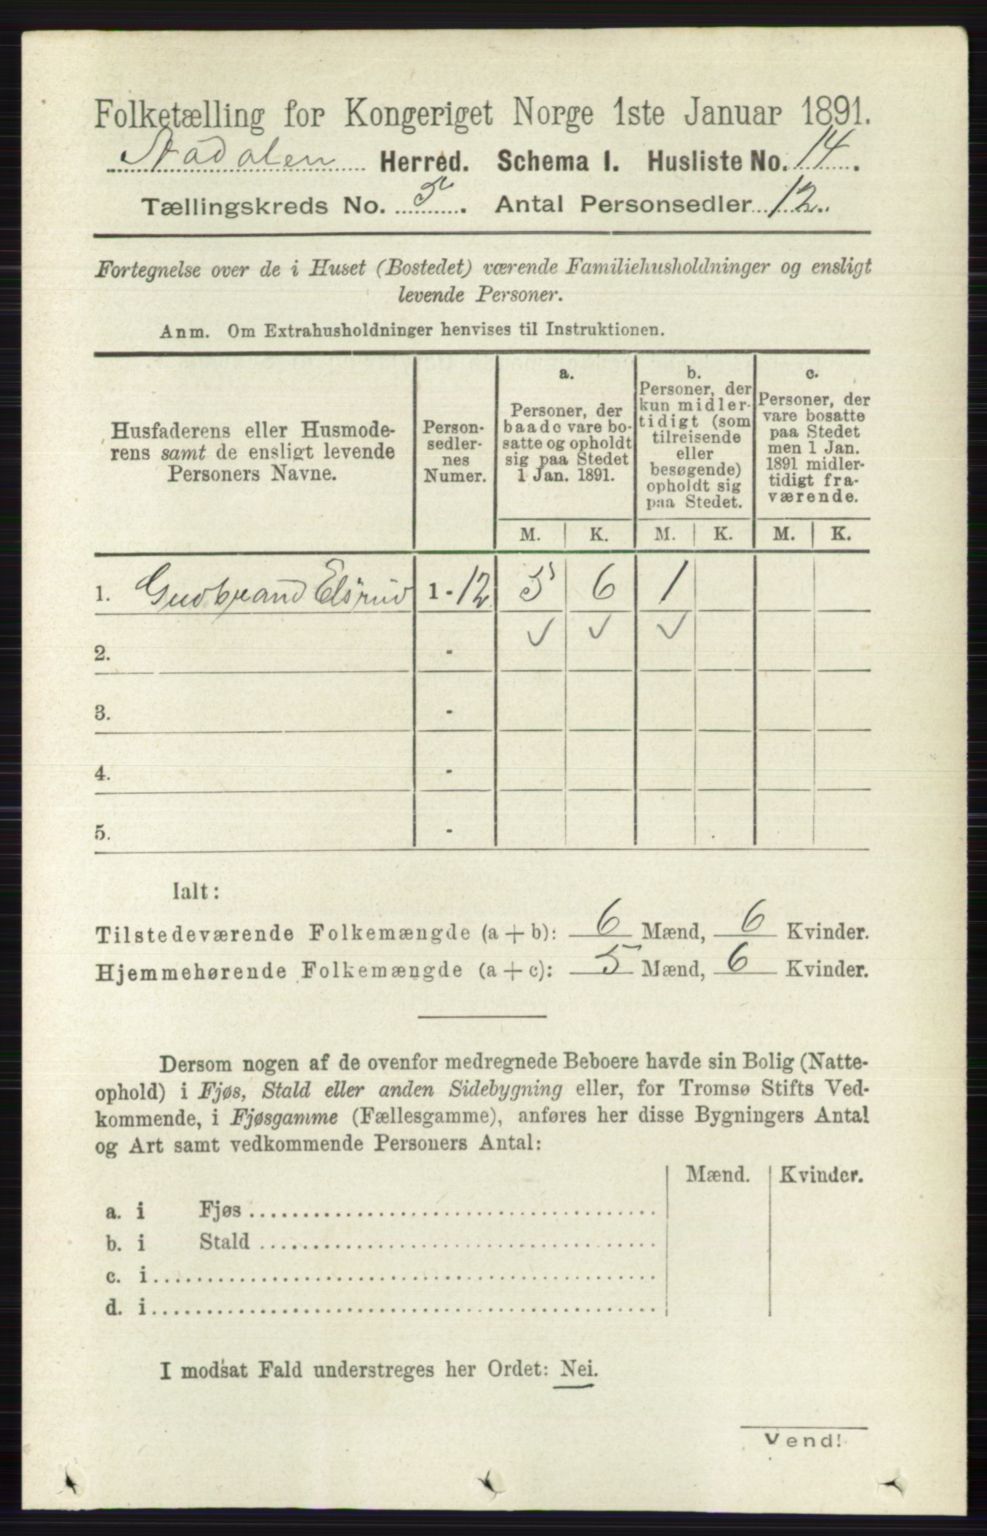 Folketælling for Kongeriget Norge 1ste Januar 1891.
Aadalen Herred. Schema I. Husliste No. 14.
Tællingskreds No. 5. Antal Personsedler 12.
Fortegnelse over de i Huset (Bostedet) værende Familiehusholdninger og ensligt
levende Personer.
Anm. Om Extrahusholdninger henvises til Instruktionen.
Husfaderens eller Husmode-
rens samt de ensligt levende
Personers Navne.
Person-
sedler-
nes
Numer.
a.
Personer, der
baade vare bo-
satte og opholdt
sig paa Stedet
1 Jan. 1891.
b.
Personer, der
kun midler-
tidigt (som
tilreisende
eller
besøgende)
opholdt sig
paa Stedet.
c.
Personer, der
vare bosatte
paa Stedet
men 1 Jan.
1891 midler-
tidigt fra-
værende.
M. K. M. K. M. K.
1. Gudbrand Elsrud 1 - 12 5 6 1
2. - ✓ ✓ ✓
3. -
4. -
5. -
Ialt:
Tilstedeværende Folkemængde (a + b): 6 Mænd, 6 Kvinder.
Hjemmehørende Folkemængde (a + c): 5 Mænd, 6 Kvinder.
Dersom nogen af de ovenfor medregnede Beboere havde sin Bolig (Natte-
ophold) i Fjøs, Stald eller anden Sidebygning eller, for Tromsø Stifts Ved-
kommende, i Fjøsgamme (Fællesgamme), anføres her disse Bygningers Antal
og Art samt vedkommende Personers Antal:
Mænd. Kvinder.
a. i Fjøs
b. i Stald
c. i
d. i
I modsat Fald understreges her Ordet: Nei.
Vend!